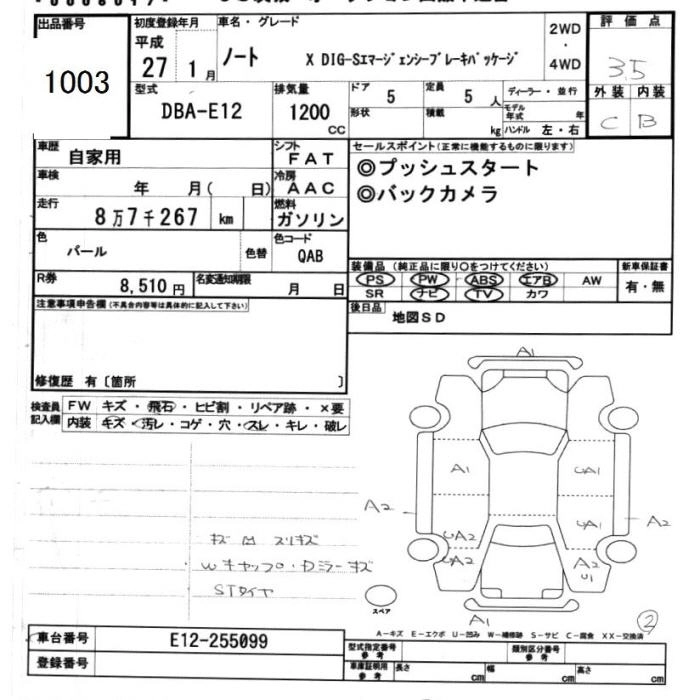 出品番号 1003
初度登録年月 平成 27年 1月
車名・グレード ノート X DIG-Sエマージェンシーブレーキパッケージ
2WD ・ 4WD
評価点 3.5
外装 C 内装 B
型式 DBA-E12
排気量 1200 CC
ドア 5 定員 5 人
形状 積載 kg
ディーラー・並行
モデル年式 年
ハンドル 左・右
車歴 自家用
シフト FAT
車検 年 月( 日)
冷房 AAC
走行 8万7千267 km
燃料 ガソリン
色 パール 色替
色コード QAB
R券 8,510円
名変通知期限 月 日
セールスポイント(正常に機能するものに限ります)
◎プッシュスタート
◎バックカメラ
装備品 (純正品に限り○をつけてください)
PS PW ABS エアB AW
SR ナビ TV カワ
新車保証書 有・無
後日品 地図SD
注意事項申告欄(不具合内容等は具体的に記入して下さい)
修復歴 有〔箇所 〕
検査員記入欄
FW キズ・飛石・ヒビ割・リペア跡・×要
内装 キズ・汚レ・コゲ・穴・スレ・キレ・破レ
キズ 凹 スリキズ
Wキャップ・Dミラーキズ
STタイヤ
A1
A1 UA1
A2 UA1 A2
UA2 UA2 A2 U1
A1
スペア
②
A-キズ E-エクボ U-凹み W-補修跡 S-サビ C-腐食 XX-交換済
車台番号 E12-255099
登録番号
型式指定番号 参考 類別区分番号 参考
車庫証明用 参考 長さ cm 幅 cm 高さ cm